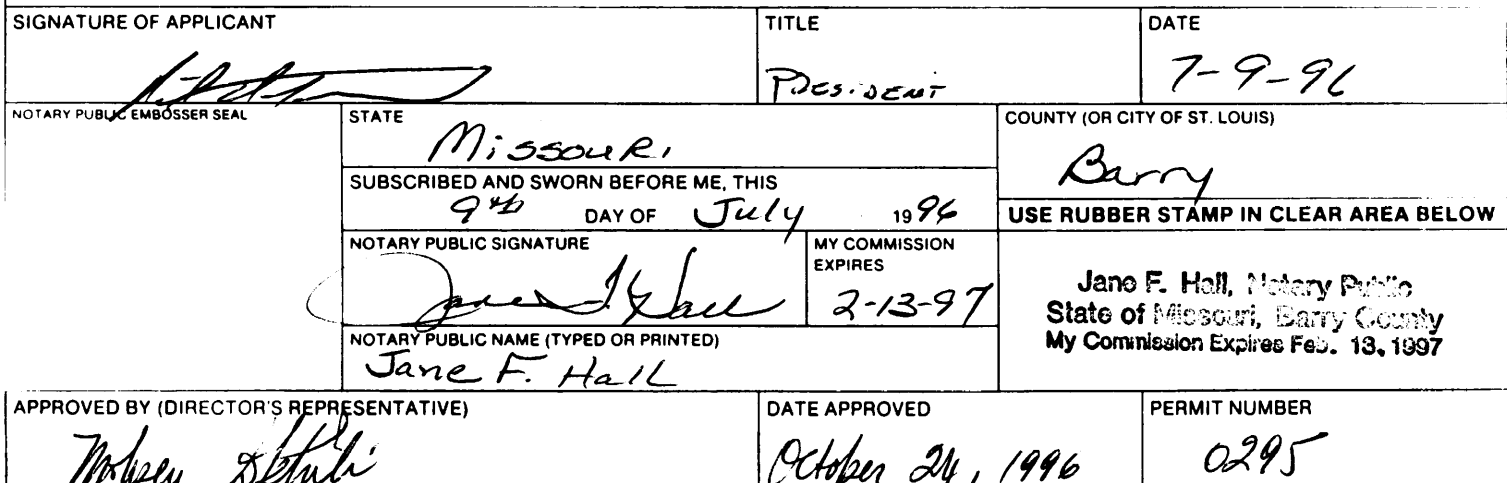 SIGNATURE OF APPLICANT
TITLE
DATE
PRESIDENT
7-9-96
NOTARY PUBLIC EMBOSSER SEAL
STATE
COUNTY (OR CITY OF ST. LOUIS)
Missouri
Barry
SUBSCRIBED AND SWORN BEFORE ME, THIS
9th DAY OF July 1996
USE RUBBER STAMP IN CLEAR AREA BELOW
NOTARY PUBLIC SIGNATURE
MY COMMISSION
EXPIRES
Jane F. Hall
2-13-97
Jane F. Hall, Notary Public
State of Missouri, Barry County
My Commission Expires Feb. 13, 1997
NOTARY PUBLIC NAME (TYPED OR PRINTED)
Jane F. Hall
APPROVED BY (DIRECTOR'S REPRESENTATIVE)
DATE APPROVED
PERMIT NUMBER
October 24, 1996
0295